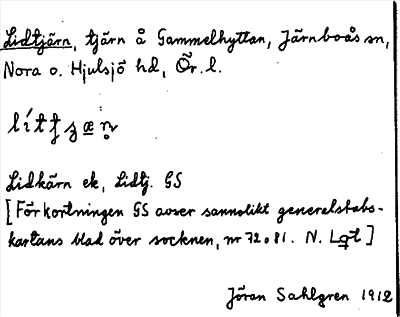 Lidtjärn, tjärn å Gammelhyttan, Järnboås sn,
Nora o. Hjulsjö hd, Ör. l.
Lidkärn ek, Lidtj. GS
[Förkortningen GS avser sannolikt generalstabs-
kartans blad över socknen, nr 72 o 81. N. Lgt]
Jöran Sahlgren 1912